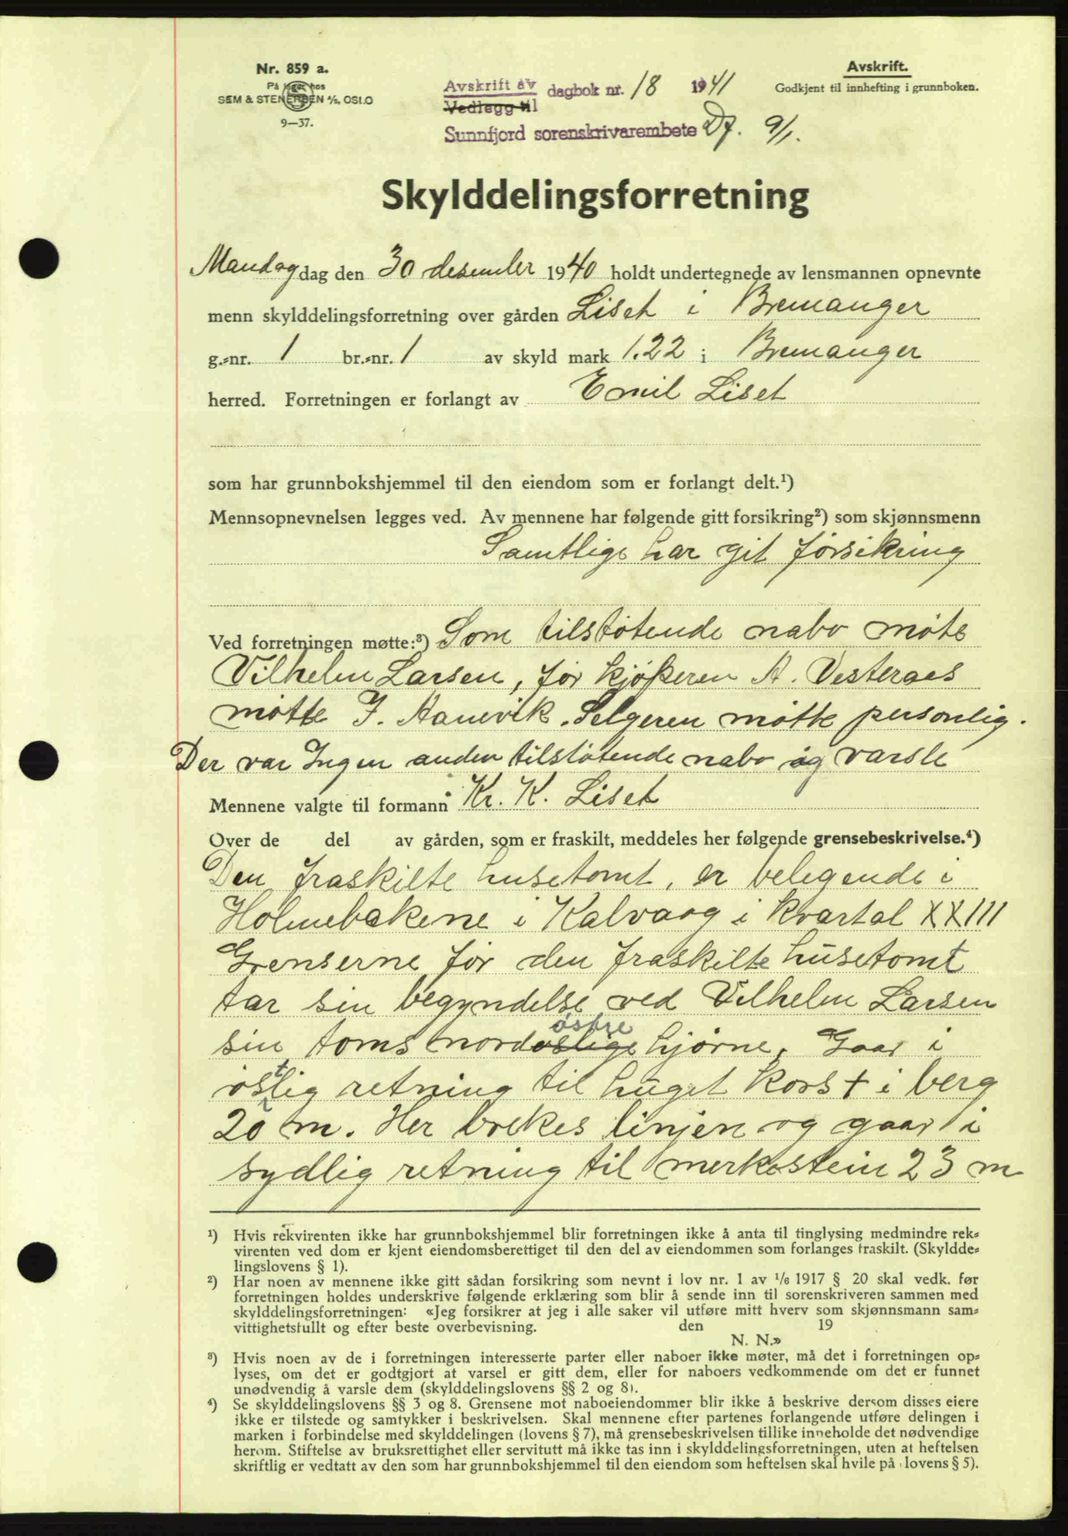 Nr. 859 a.
På lager hos
SEM & STENERSEN A/S, OSLO
9—37.
Avskrift av
Vedlegg til
dagbok nr. 18 1941
Sunnfjord sorenskrivarembete 9/1.
Avskrift.
Godkjent til innhefting i grunnboken.
Skylddelingsforretning
Mandag dag den 30 desember 1940 holdt undertegnede av lensmannen opnevnte
menn skylddelingsforretning over gården Liset i Bremanger
g.-nr. 1 br.-nr. 1 av skyld mark 1.22 i Bremanger
herred. Forretningen er forlangt av Emil Liset
som har grunnbokshjemmel til den eiendom som er forlangt delt.¹)
Mennsopnevnelsen legges ved. Av mennene har følgende gitt forsikring²) som skjønnsmenn
Samtlige har git forsikring
Ved forretningen møtte:³) Som tilstøtende nabo møte
Vilhelm Larsen, for kjøperen A. Vesteraas
møtte J. Hanevik. Selgeren møtte personlig.
Der var Ingen anden tilstøtende nabo og varsle
Mennene valgte til formann Kr. K. Liset
Over de del av gården, som er fraskilt, meddeles her følgende grensebeskrivelse.⁴)
Den fraskilte husetomt, er belegende i
Holmebakene i Kalvaag i kvartal XXIII
Grenserne for den fraskilte husetomt
tar sin begyndelse ved Vilhelm Larsen
østre
sin toms nordøslige hjørne. Gaar i
østlig retning til huget kors + i berg
20 m. Her brekes linjen og gaar i
sydlig retning til merkestein 23 m
¹) Hvis rekvirenten ikke har grunnbokshjemmel blir forretningen ikke å anta til tinglysing medmindre rek-
virenten ved dom er kjent eiendomsberettiget til den del av eiendommen som forlanges fraskilt. (Skyldde-
lingslovens § 1).
²) Har noen av mennene ikke gitt sådan forsikring som nevnt i lov nr. 1 av 1/6 1917 § 20 skal vedk. før
forretningen holdes underskrive følgende erklæring som blir å sende inn til sorenskriveren sammen med
skylddelingsforretningen: «Jeg forsikrer at jeg i alle saker vil utføre mitt hverv som skjønnsmann sam-
vittighetsfullt og efter beste overbevisning. den 19
N. N.»
³) Hvis noen av de i forretningen interesserte parter eller naboer ikke møter, må det i forretningen op-
lyses, om det er godtgjort at varsel er gitt dem, eller for naboers vedkommende om det er funnet
unødvendig å varsle dem (skylddelingslovens §§ 2 og 8).
⁴) Se skylddelingslovens §§ 3 og 8. Grensene mot naboeiendommer blir ikke å beskrive dersom disses eiere
ikke er tilstede og samtykker i beskrivelsen. Skal mennene efter partenes forlangende utføre delingen i
marken i forbindelse med skylddelingen (lovens § 7), må grensebeskrivelsen tillike inneholde det nødvendige
herom. Stiftelse av bruksrettighet eller servitutt må ikke tas inn i skylddelingsforretningen, uten at heftelsen
skriftlig er vedtatt av den som har grunnbokshjemmel til den eiendom som heftelsen skal hvile på (lovens § 5).